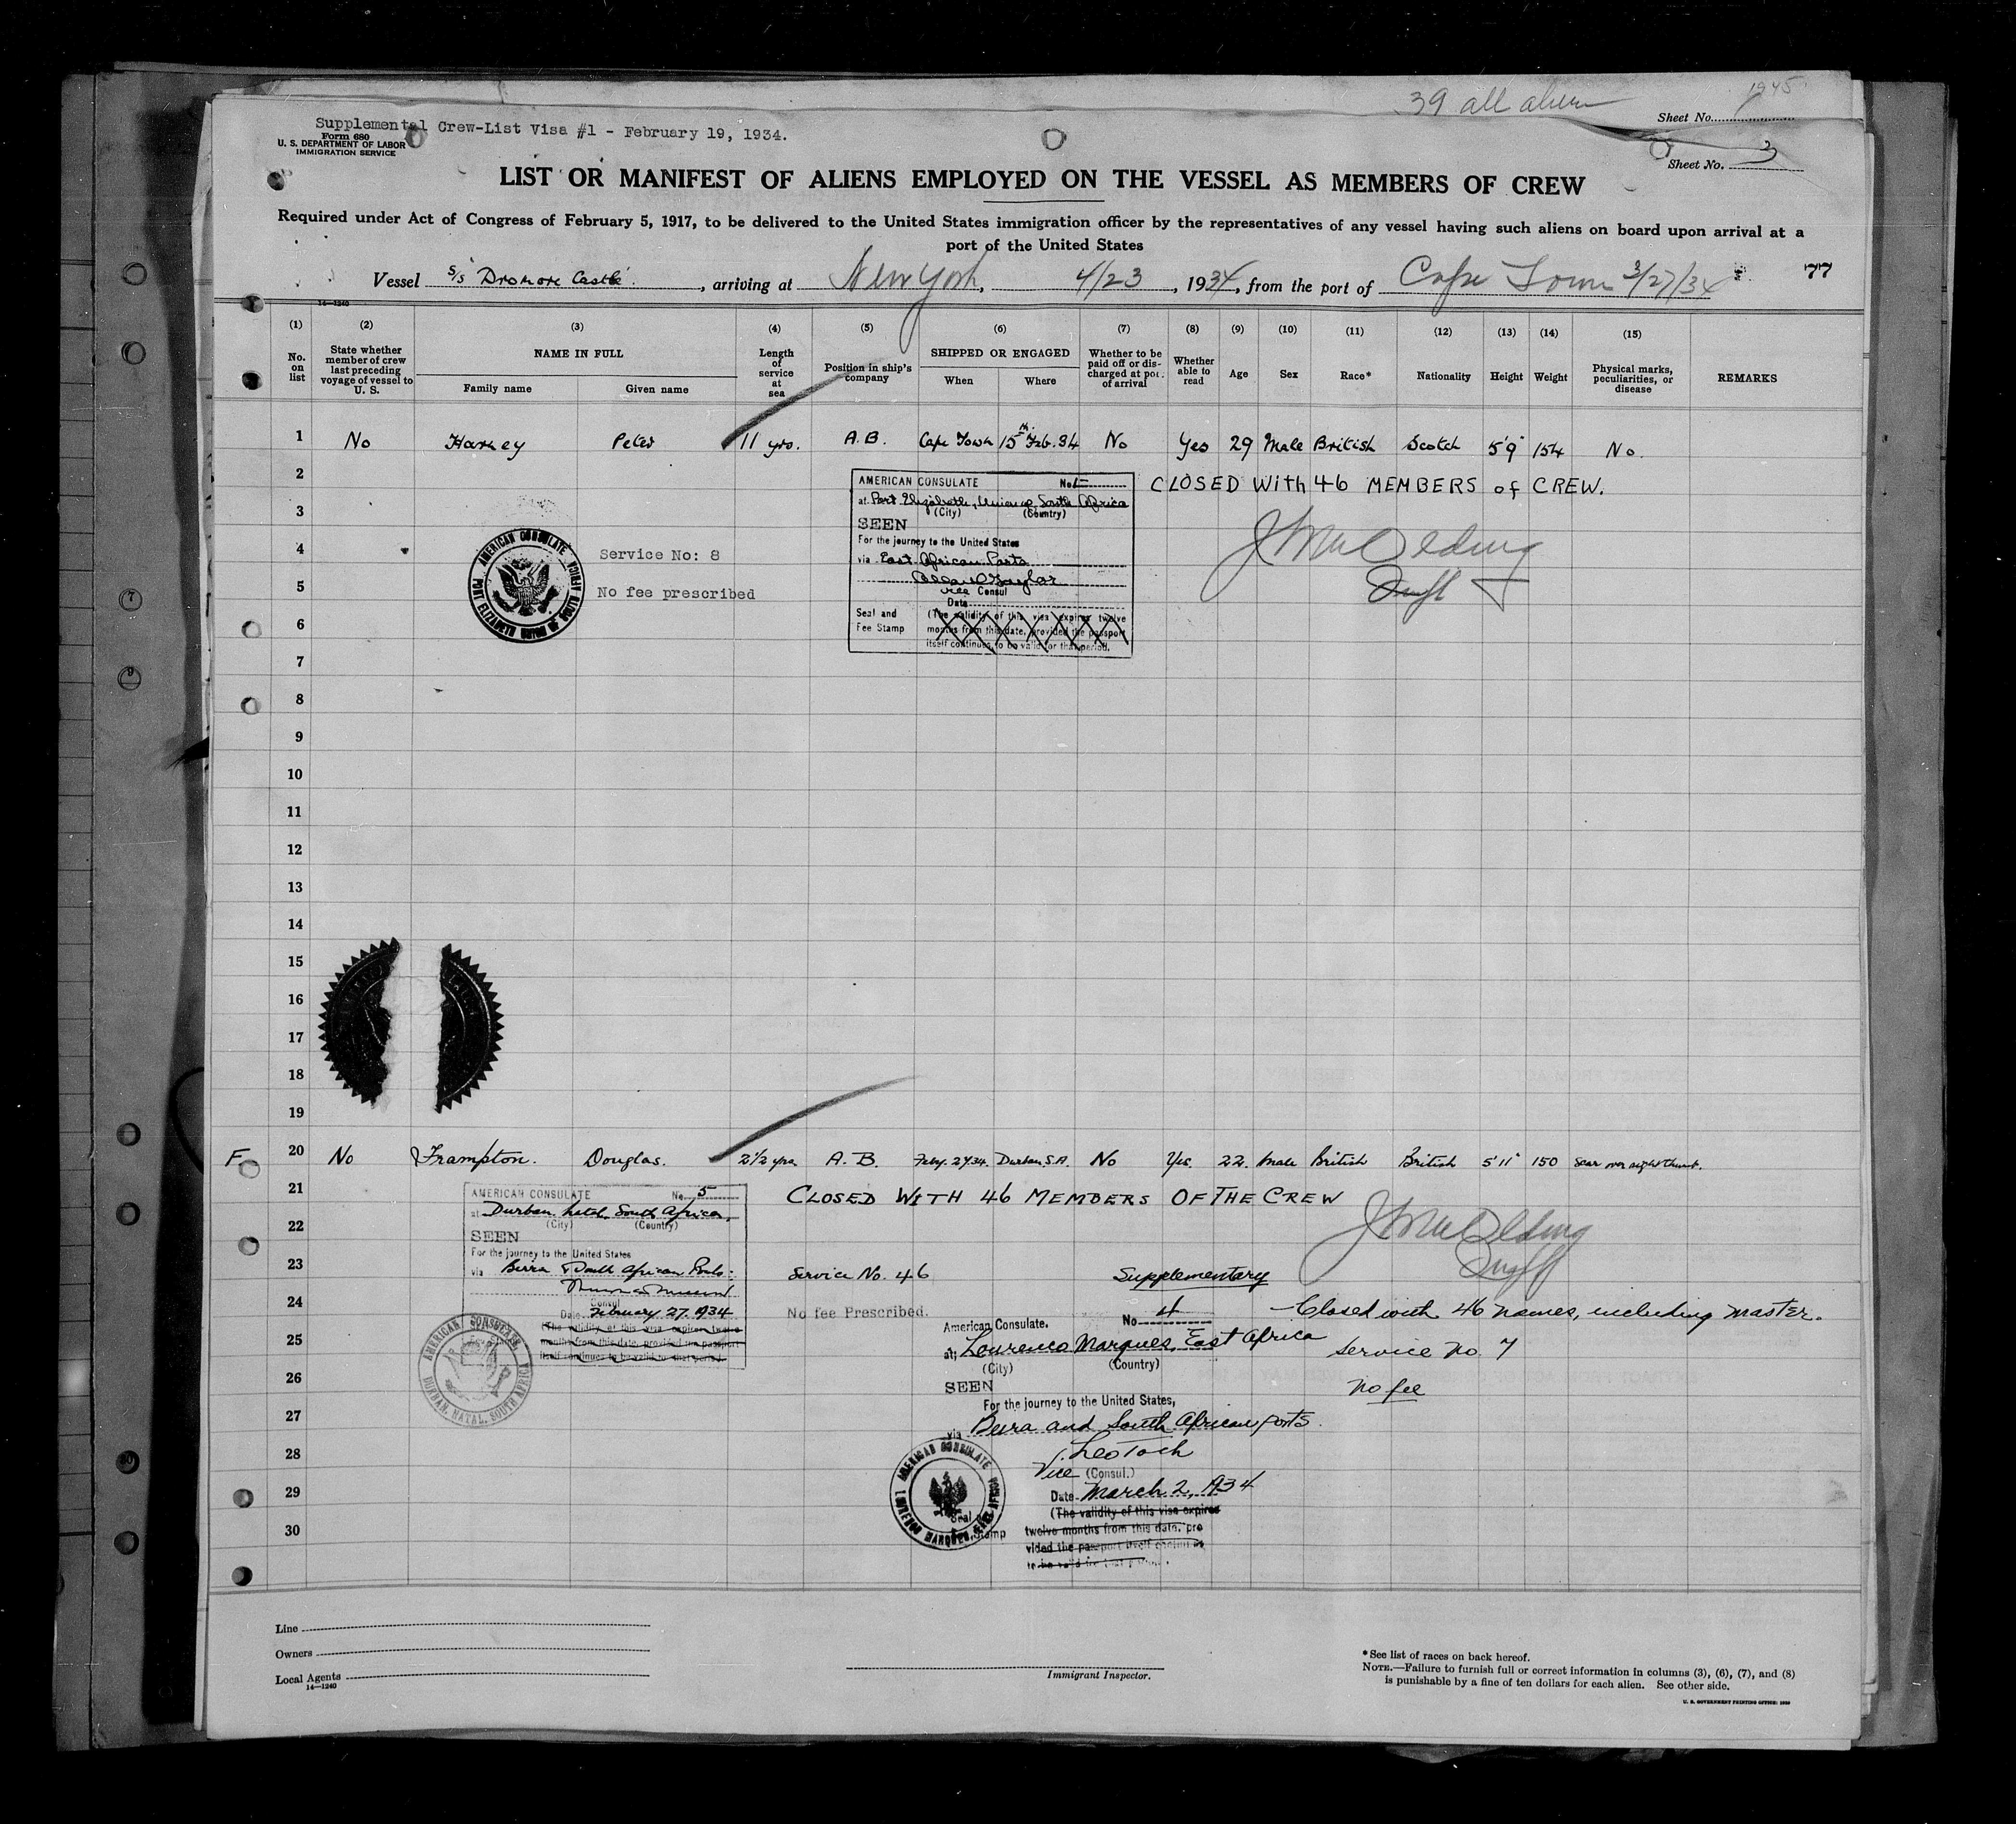 39 all alien
1945
Sheet No.
Supplemental Crew-List Visa #1 - February 19, 1934.
Form 680
U. S. DEPARTMENT OF LABOR
IMMIGRATION SERVICE
Sheet No. 3
LIST OR MANIFEST OF ALIENS EMPLOYED ON THE VESSEL AS MEMBERS OF CREW
Required under Act of Congress of February 5, 1917, to be delivered to the United States immigration officer by the representatives of any vessel having such aliens on board upon arrival at a
port of the United States
Vessel S/S Dromore Castle, arriving at New York, 4/23, 1934, from the port of Cape Town 3/27/34 77
14—1240
(1) (2) (3) (4) (5) (6) (7) (8) (9) (10) (11) (12) (13) (14) (15)
No. on list
State whether member of crew last preceding voyage of vessel to U. S.
NAME IN FULL
Family name Given name
Length of service at sea
Position in ship's company
SHIPPED OR ENGAGED
When Where
Whether to be paid off or discharged at port of arrival
Whether able to read
Age Sex Race* Nationality Height Weight
Physical marks, peculiarities, or disease
REMARKS
1 No Harvey Peter 11 yrs. A.B. Cape Town 15th Feb. 34 No Yes 29 Male British Scotch 5'9" 154 No.
2 CLOSED With 46 MEMBERS of CREW.
AMERICAN CONSULATE No. 1
at Port Elizabeth, Union of South Africa
(City) (Country)
SEEN
For the journey to the United States
via East African Ports
Vice Consul
Date
Seal and Fee Stamp
(The validity of this visa expires twelve
months from this date, provided the passport
itself continues to be valid for that period.
AMERICAN CONSULATE
PORT ELIZABETH UNION OF SOUTH AFRICA
Service No: 8
No fee prescribed
3
4
5
6
7
8
9
10
11
12
13
14
15
16
17
18
19
F 20 No Frampton. Douglas. 2½ yrs A. B. Feby. 27.34. Durban S.A. No Yes. 22. Male British British 5'11" 150 Scar over right thumb.
21 CLOSED WITH 46 MEMBERS OF THE CREW
22
23
24
25
26
27
28
29
30
AMERICAN CONSULATE No. 5
at Durban, Natal, South Africa,
(City) (Country)
SEEN
For the journey to the United States
via Beira & South African Ports.
Consul
Date February 27, 1934
(The validity of this visa expires twelve
months from this date, provided the passport
itself continues to be valid for that period.
AMERICAN CONSULATE
DURBAN, NATAL, SOUTH AFRICA
Service No. 46
No fee Prescribed.
Supplementary
No 4
American Consulate.
at; Lourenco Marques, East Africa
(City) (Country)
SEEN
For the journey to the United States,
via Beira and South African ports.
Vice (Consul.)
Date March 2, 1934
(The validity of this visa expires
twelve months from this date, pro
vided the passport itself continues
to be valid for that period.
AMERICAN CONSULATE
LOURENCO MARQUES, EAST AFRICA
Seal
Stamp
Closed with 46 names, including master.
Service No. 7
No fee
Line
Owners
Local Agents
14—1240
Immigrant Inspector.
*See list of races on back hereof.
NOTE.—Failure to furnish full or correct information in columns (3), (6), (7), and (8)
is punishable by a fine of ten dollars for each alien. See other side.
U. S. GOVERNMENT PRINTING OFFICE: 1930